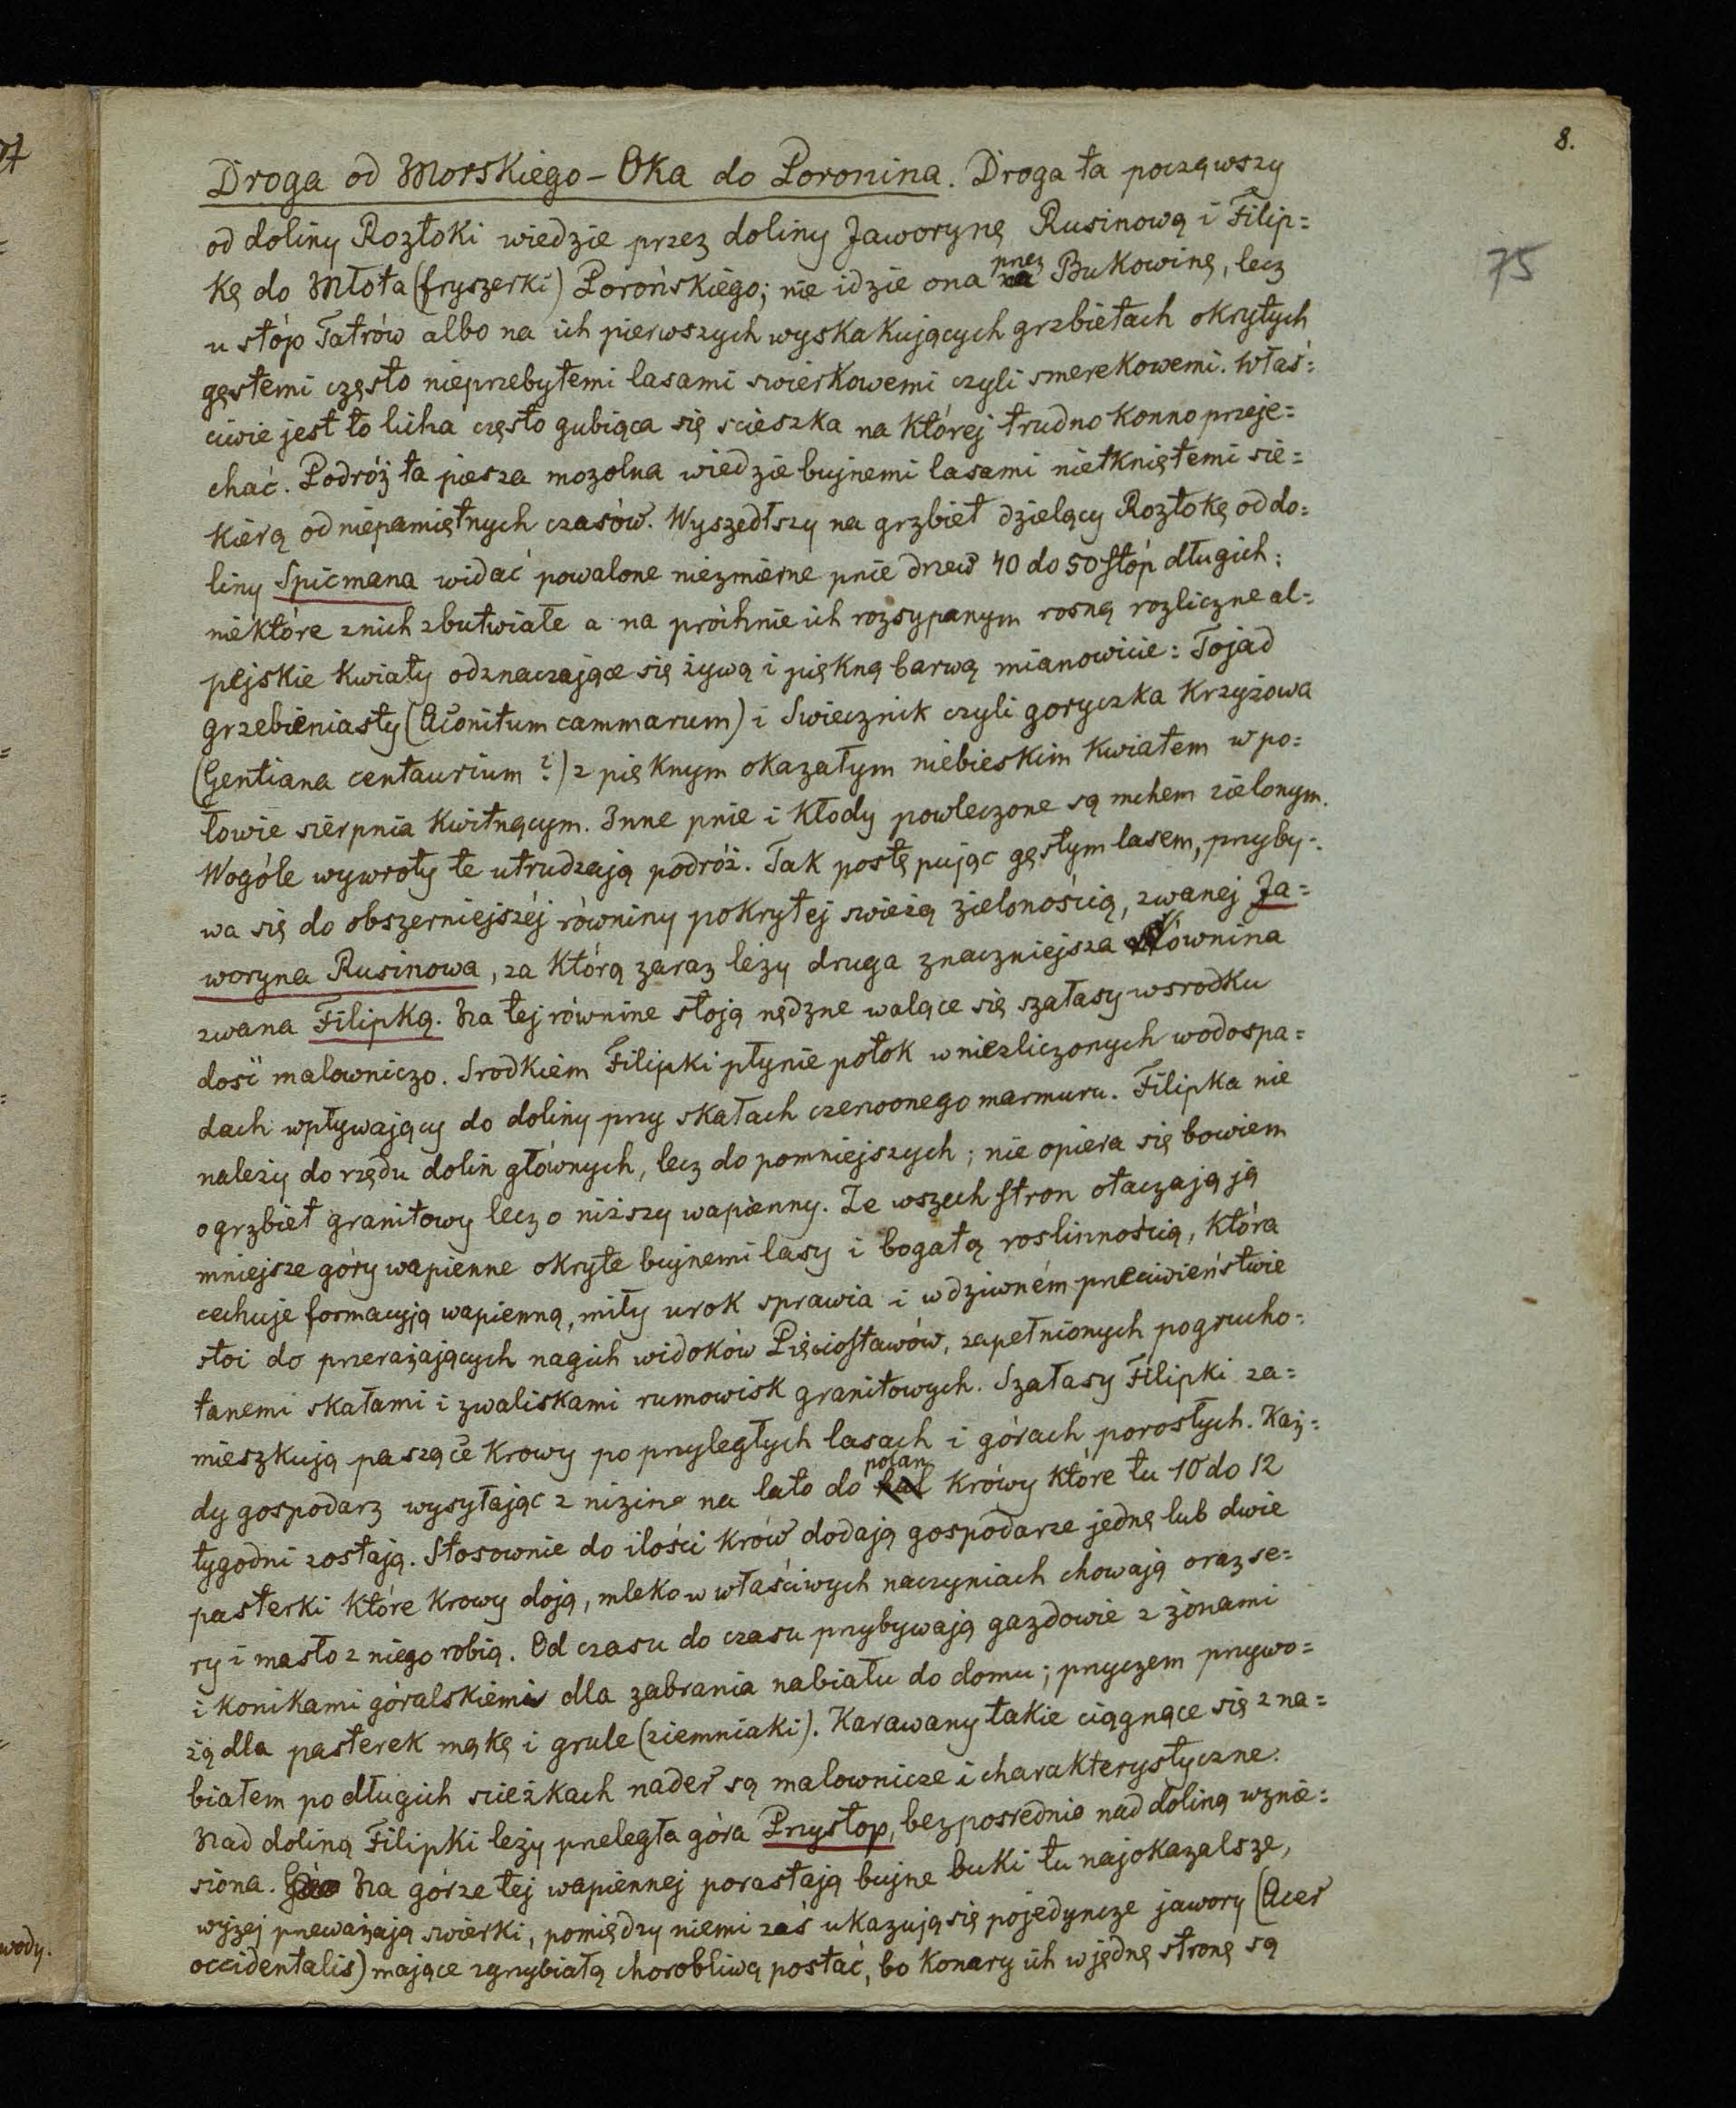 8.
75
Droga od Morskiego-Oka do Poronina. Droga ta począwszy
od doliny Roztoki wiedzie przez doliny Jaworynę Rusinową i Filip=
kę do Młota (fryszerki) Porońskiego; nie idzie ona przez Bukowinę, lecz
u stóp Tatrów albo na ich pierwszych wyskakujących grzbietach okrytych
gęstemi często nieprzebytemi lasami swierkowemi czyli smerekowemi. Właś=
ciwie jest to licha często gubiąca się scieszka na której trudno konno przeje=
chać. Podróż ta piesza mozolna wiedzie bujnemi lasami nietkniętemi sie=
kierą od niepamiętnych czasów. Wyszedłszy na grzbiet dzielący Roztokę od do=
liny Spicmana widać powalone niezmierne pnie drzew 40 do 50 stóp długich:
niektóre z nich zbutwiałe a na próchnie ich rozsypanym rosną rozliczne al=
pejskie kwiaty odznaczające się żywą i piękną barwą mianowicie: Tojad
grzebieniasty (Aconitum cammarum) i Swiecznik czyli goryczka krzyżowa
(Gentiana centaurium?) z pięknym okazałym niebieskim kwiatem w po=
łowie sierpnia kwitnącym. Inne pnie i kłody powleczone są mchem zielonym.
Wogóle wywroty te utrudzają podróż. Tak postępując gęstym lasem, przyby=
wa się do obszerniejszéj równiny pokrytej swieżą zielonością, zwanej Ja=
woryna Rusinowa, za którą zaraz leży druga znaczniejsza równina
zwana Filipką. Na tej równine stoją nędzne walące się szałasy wsrodku
dość malowniczo. Srodkiem Filipki płynie potok w niezliczonych wodospa=
dach wpływający do doliny przy skałach czerwonego marmuru. Filipka nie
należy do rzędu dolin głównych, lecz do pomniejszych; nie opiera się bowiem
o grzbiet granitowy lecz o niższy wapienny. Ze wszech stron otaczają ją
mniejsze góry wapienne okryte bujnemi lasy i bogatą roslinnością, która
cechuje formacyją wapienną, miły urok sprawia i w dziwném przeciwieństwie
stoi do przerażających nagich widoków Pięciostawów, zapełnionych pogrucho=
tanemi skałami i zwaliskami rumowisk granitowych. Szałasy Filipki za=
mieszkują pasące krowy po przyległych lasach i górach porosłych. Każ=
dy gospodarz wysyłając z nizine na lato do polan krówy które tu 10 do 12
tygodni zostają. Stosownie do ilości krów dodają gospodarze jednę lub dwie
pasterki które krowy doją, mleko w właściwych naczyniach chowają oraz se=
ry i masło z niego robią. Od czasu do czasu przybywają gazdowie z żonami
i konikami góralskiemi dla zabrania nabiału do domu; przyczem przywo=
żą dla pasterek mąkę i grule (ziemniaki). Karawany takie ciągnące się z na=
białem po długich scieżkach nader są malownicze i charakterystyczne.
Nad doliną Filipki leży przeległa góra Przysłop, bezposrednio nad doliną wznie=
siona. Na górze tej wapiennej porastają bujne buki tu najokazalsze,
wyżej przeważają swierki, pomiędzy niemi zaś ukazują się pojedyncze jawory (Acer
occidentalis) mające zgrzybiałą chorobliwą postać, bo konary ich w jednę stronę są
wody.